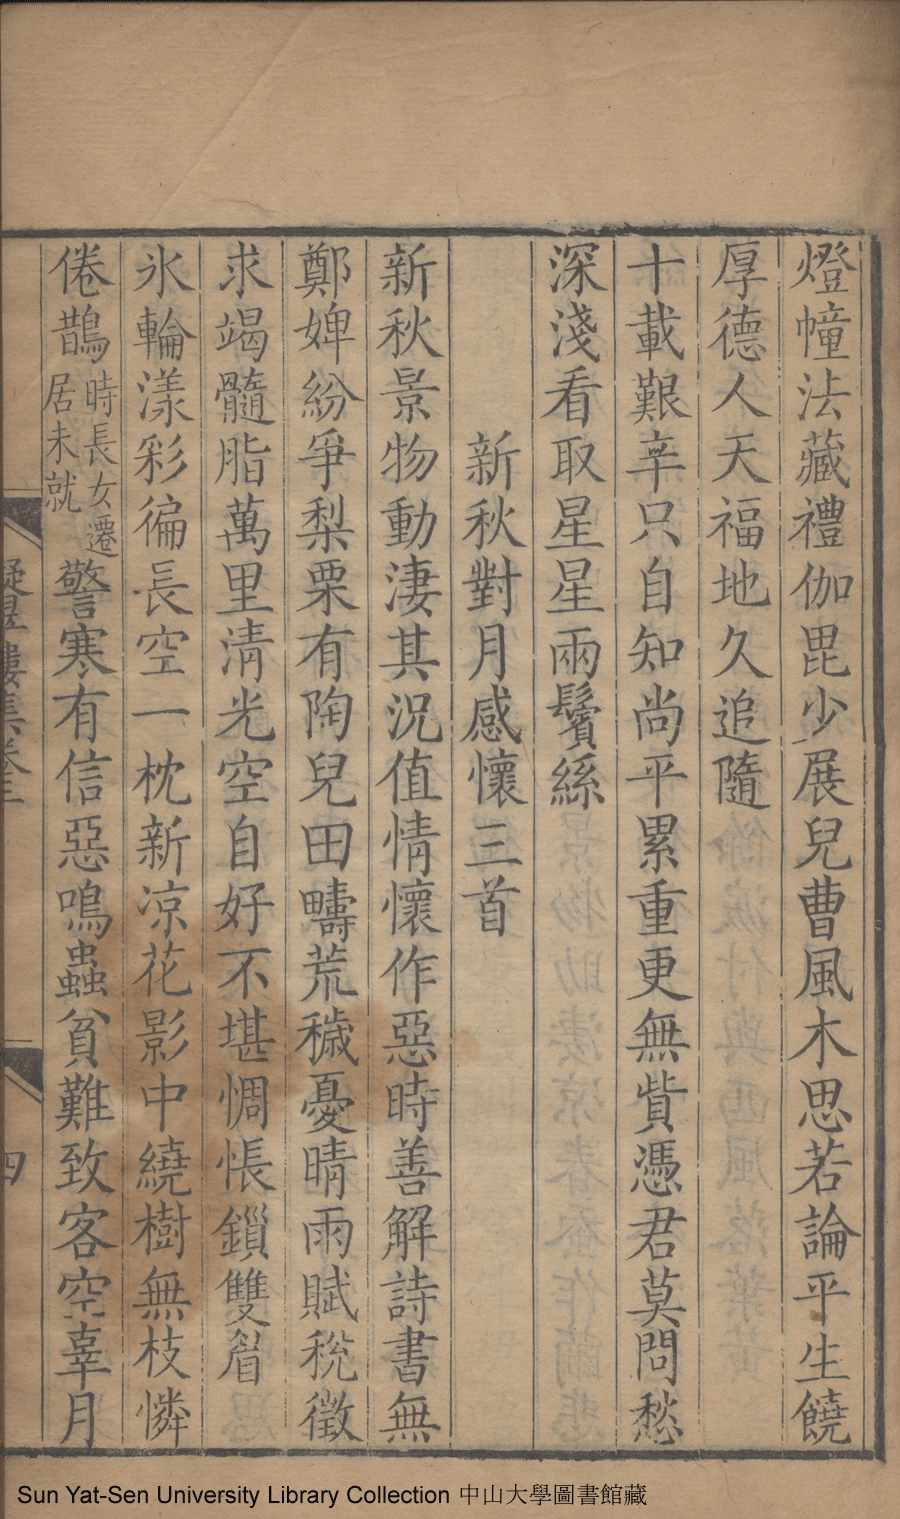 燈幢法藏禮伽毘少展兒曹風木思若論平生饒
厚德人天福地久追隨
十載艱辛只自知尚平累重更無貲憑君莫問愁
深淺看取星星兩鬢絲
新秋對月感懷三首
新秋景物動淒其況值情懷作惡時善解詩書無
鄭婢紛爭梨栗有陶兒田疇荒穢憂晴雨賦稅徵
求竭髓脂萬里清光空自好不堪惆悵鎖雙眉
氷輪漾彩徧長空一枕新凉花影中繞樹無枝憐
倦鵲時長女遷居未就警寒有信惡鳴蟲貧難致客空辜月
凝翠樓集卷三
四
Sun Yat-Sen University Library Collection 中山大學圖書館藏